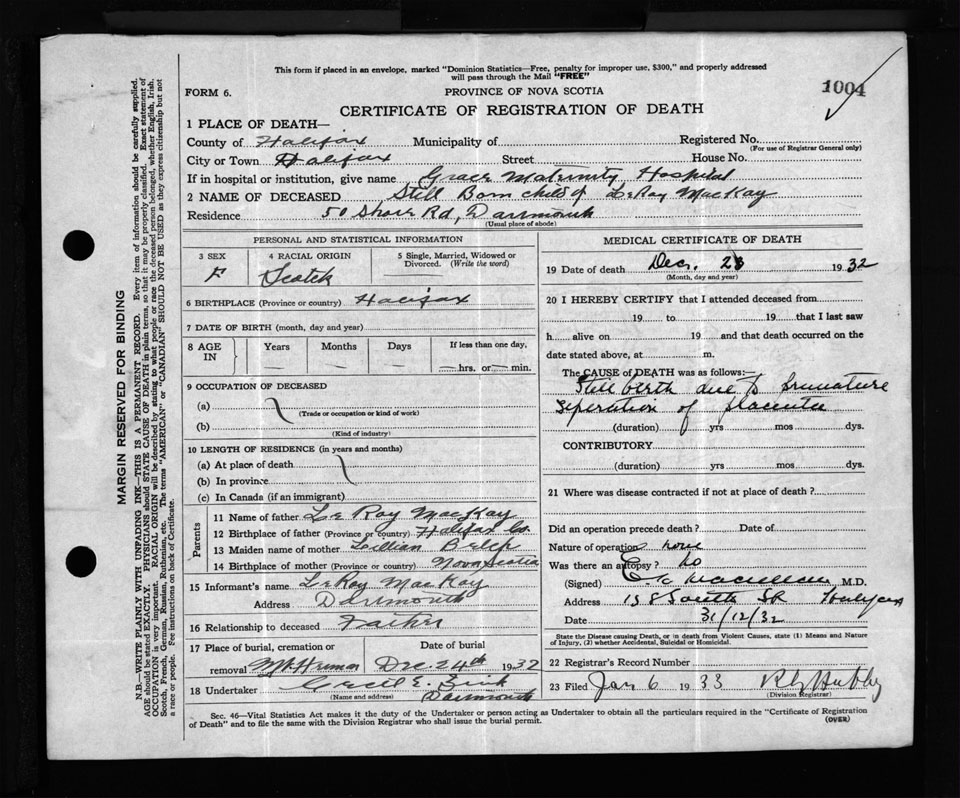 This form if placed in an envelope, marked "Dominion Statistics—Free, penalty for improper use, $300," and properly addressed
will pass through the Mail "FREE"
FORM 6.
PROVINCE OF NOVA SCOTIA
1004
CERTIFICATE OF REGISTRATION OF DEATH
1 PLACE OF DEATH—
County of Halifax Municipality of Registered No.
(For use of Registrar General only)
City or Town Halifax Street House No.
If in hospital or institution, give name Grace Maternity Hospital
2 NAME OF DECEASED Still Born child of LeRoy MacKay
Residence 50 Shore Rd, Dartmouth
(Usual place of abode)
PERSONAL AND STATISTICAL INFORMATION
3 SEX
F
4 RACIAL ORIGIN
Scotch
5 Single, Married, Widowed or
Divorced. (Write the word)
6 BIRTHPLACE (Province or country) Halifax
7 DATE OF BIRTH (month, day and year)
8 AGE IN
Years Months Days If less than one day,
hrs. or min.
9 OCCUPATION OF DECEASED
(a)
(Trade or occupation or kind of work)
(b)
(Kind of industry)
10 LENGTH OF RESIDENCE (in years and months)
(a) At place of death
(b) In province
(c) In Canada (if an immigrant)
Parents
11 Name of father Le Roy MacKay
12 Birthplace of father (Province or country) Halifax Co.
13 Maiden name of mother Lillian
14 Birthplace of mother (Province or country) Nova Scotia
15 Informant's name LeRoy MacKay
Address Dartmouth
16 Relationship to deceased Father
17 Place of burial, cremation or Date of burial
removal Mt Hermon Dec. 24th 1932
18 Undertaker Cecil E. Zink
(Name and address) Dartmouth
MEDICAL CERTIFICATE OF DEATH
19 Date of death Dec. 23 1932
(Month, day and year)
20 I HEREBY CERTIFY that I attended deceased from
19 to 19 that I last saw
h alive on 19 and that death occurred on the
date stated above, at m.
The CAUSE of DEATH was as follows:—
Still birth due to premature
seperation of placenta
(duration) yrs mos dys.
CONTRIBUTORY
(duration) yrs mos dys.
21 Where was disease contracted if not at place of death?
Did an operation precede death? Date of
Nature of operation none
Was there an autopsy? no
(Signed) M.D.
Address 138 South St Halifax
Date 31/12/32
State the Disease causing Death, or in death from Violent Causes, state (1) Means and Nature
of Injury, (2) whether Accidental, Suicidal or Homicidal.
22 Registrar's Record Number
23 Filed Jan 6 1933
(Division Registrar)
Sec. 46—Vital Statistics Act makes it the duty of the Undertaker or person acting as Undertaker to obtain all the particulars required in the "Certificate of Registration
of Death" and to file the same with the Division Registrar who shall issue the burial permit.
(OVER)
MARGIN RESERVED FOR BINDING
N.B.—WRITE PLAINLY WITH UNFADING INK—THIS IS A PERMANENT RECORD. Every item of information should be carefully supplied.
AGE should be stated EXACTLY. PHYSICIANS should STATE CAUSE OF DEATH in plain terms, so that it may be properly classified. Exact statement of
OCCUPATION is very important. RACIAL ORIGIN will be described by stating to what people or race the deceased person belonged, whether English, Irish,
Scotch, French, German, Russian, Ruthenian, etc. The terms "AMERICAN" or "CANADIAN" SHOULD NOT BE USED as they express citizenship but not
a race or people. See instructions on back of Certificate.